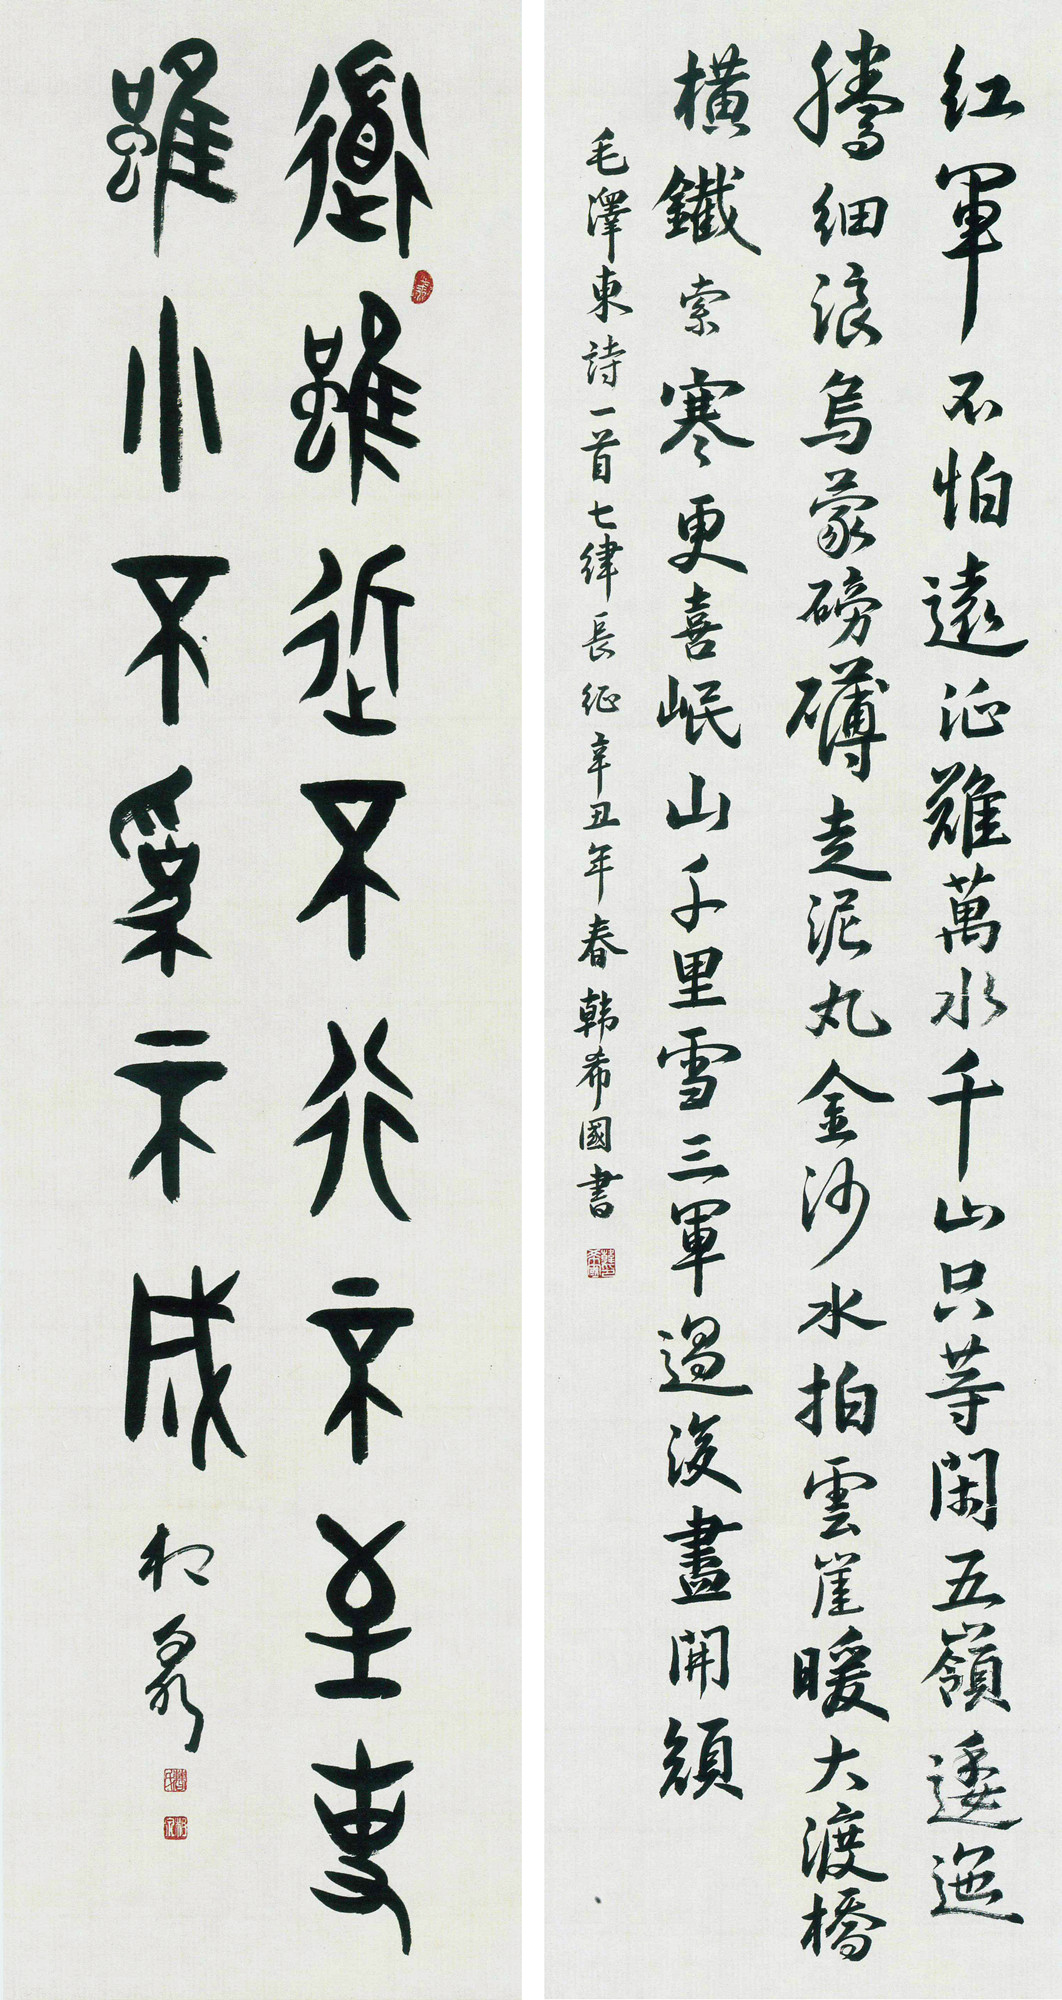 紅軍不怕遠征難萬水千山只等閑五嶺逶迤
騰細浪烏蒙磅礴走泥丸金沙水拍雲崖暖大渡橋
橫鐵索寒更喜岷山千里雪三軍過後盡開顏
毛澤東詩一首七律長征辛丑年春韓希國書
道雖近不行不至事
雖小不為不成